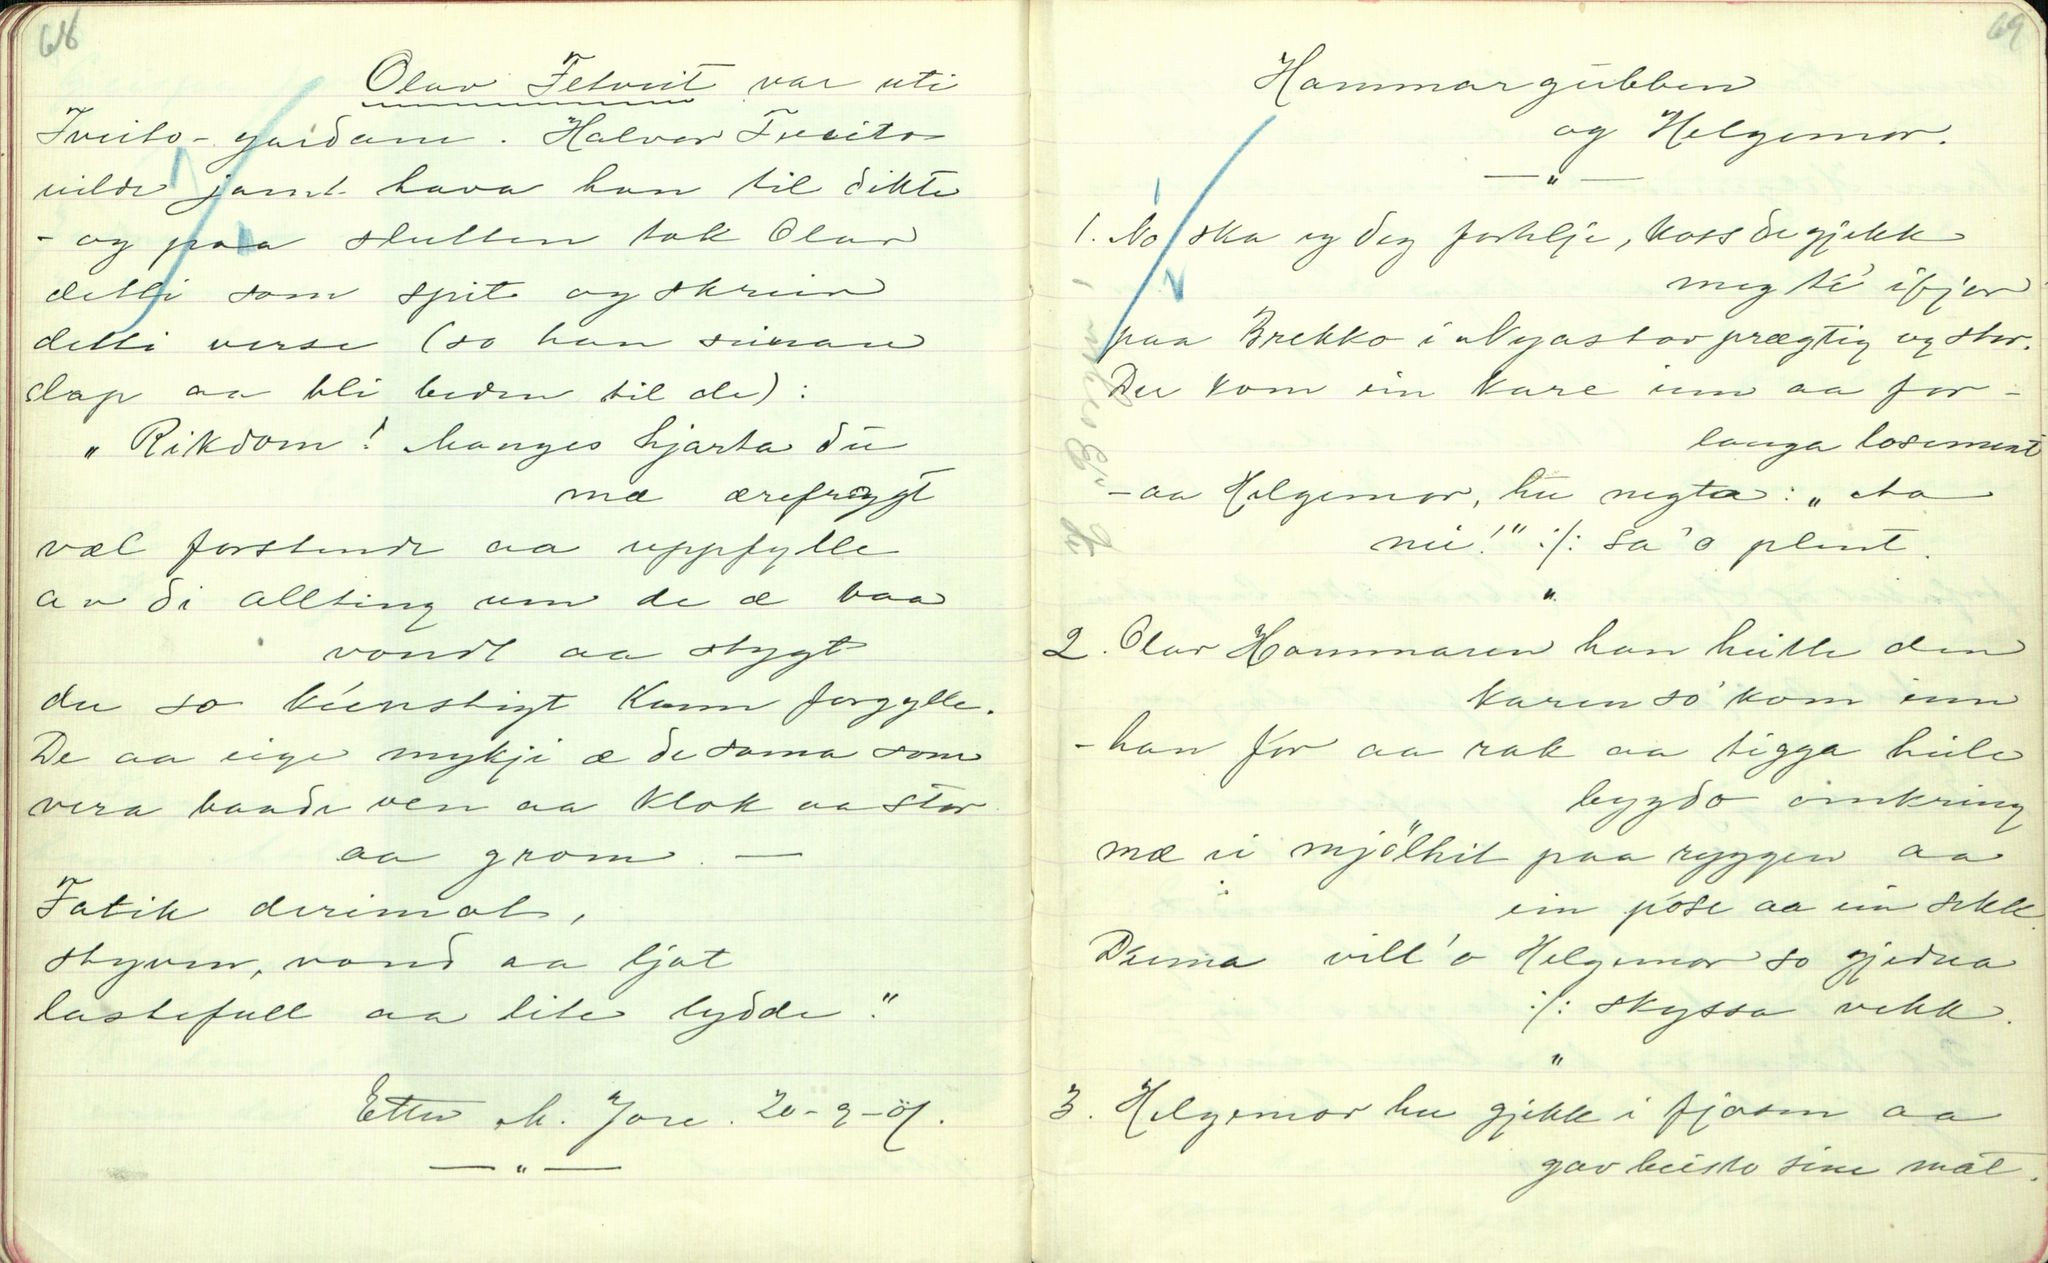 68
Olav Fetveit var uti
Tveito-gardane. Halvor Tveito
vilde jamt hava han til dikte
- og paa slutten tok Olav
detti som spit og skreiv
detti verse (so han sidan
slap aa bli beden til de):
"Rikdom! Manges hjarta du
mæ ærefrygt
væl forstende aa uppfylle
av di allting um de æ baa
vondt aa stygt
du so kunstigt kann forgylle.
De aa eige mykji æ de sama som
vera baade ven aa klok aa stor
aa grom. —
Fatik derimot,
styven, vond aa ljot
lastefull aa lite lydde."
Etter M. Jore. 20-9-
— " —
69
Hammargubben
og Helgemor.
— " —
1. No ska eg deg fortelje, koss de gjekk
meg te' ifjor
paa Brekko i Nyastov prægtig og stor.
Der kom ein kare inn aa for-
langa losement
- aa Helgemor, hu negta: "Aa
nei!" :/: sa' o plent.
"
2. Olav Hammaren han heitte den
karen so' kom inn
- han for aa rak aa tigga heile
bygdo omkring
mæ ei mjölhit paa ryggen aa
ein pose aa ein sekk.
Denna vill' o Helgemor so gjedna
:/: skyssa vekk.
"
3. Helgemor hu gjekk i fjosen aa
gav beisto sine mat.